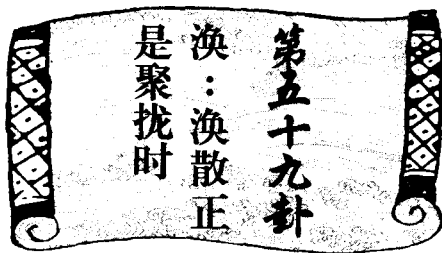 第五十九卦
涣：涣散正
是聚拢时